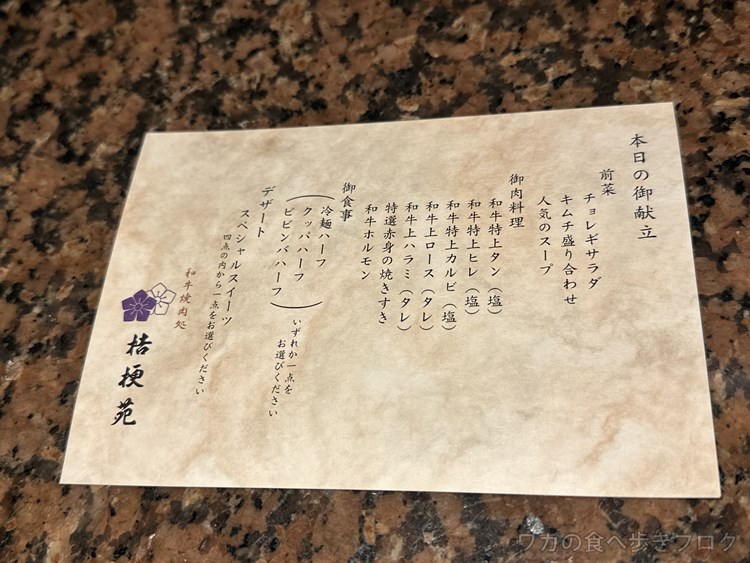 本日の御献立
前菜
チョレギサラダ
キムチ盛り合わせ
人気のスープ
御肉料理
和牛特上タン（塩）
和牛特上ヒレ（塩）
和牛特上カルビ（塩）
和牛上ロース（タレ）
和牛上ハラミ（タレ）
特選赤身の焼きすき
和牛ホルモン
御食事
冷麺ハーフ
クッパハーフ
ビビンバハーフ
いずれか一点を
お選びください
デザート
スペシャルスイーツ
四点の内から一点をお選びください
和牛焼肉処
桔梗苑
ワカの食べ歩きブログ